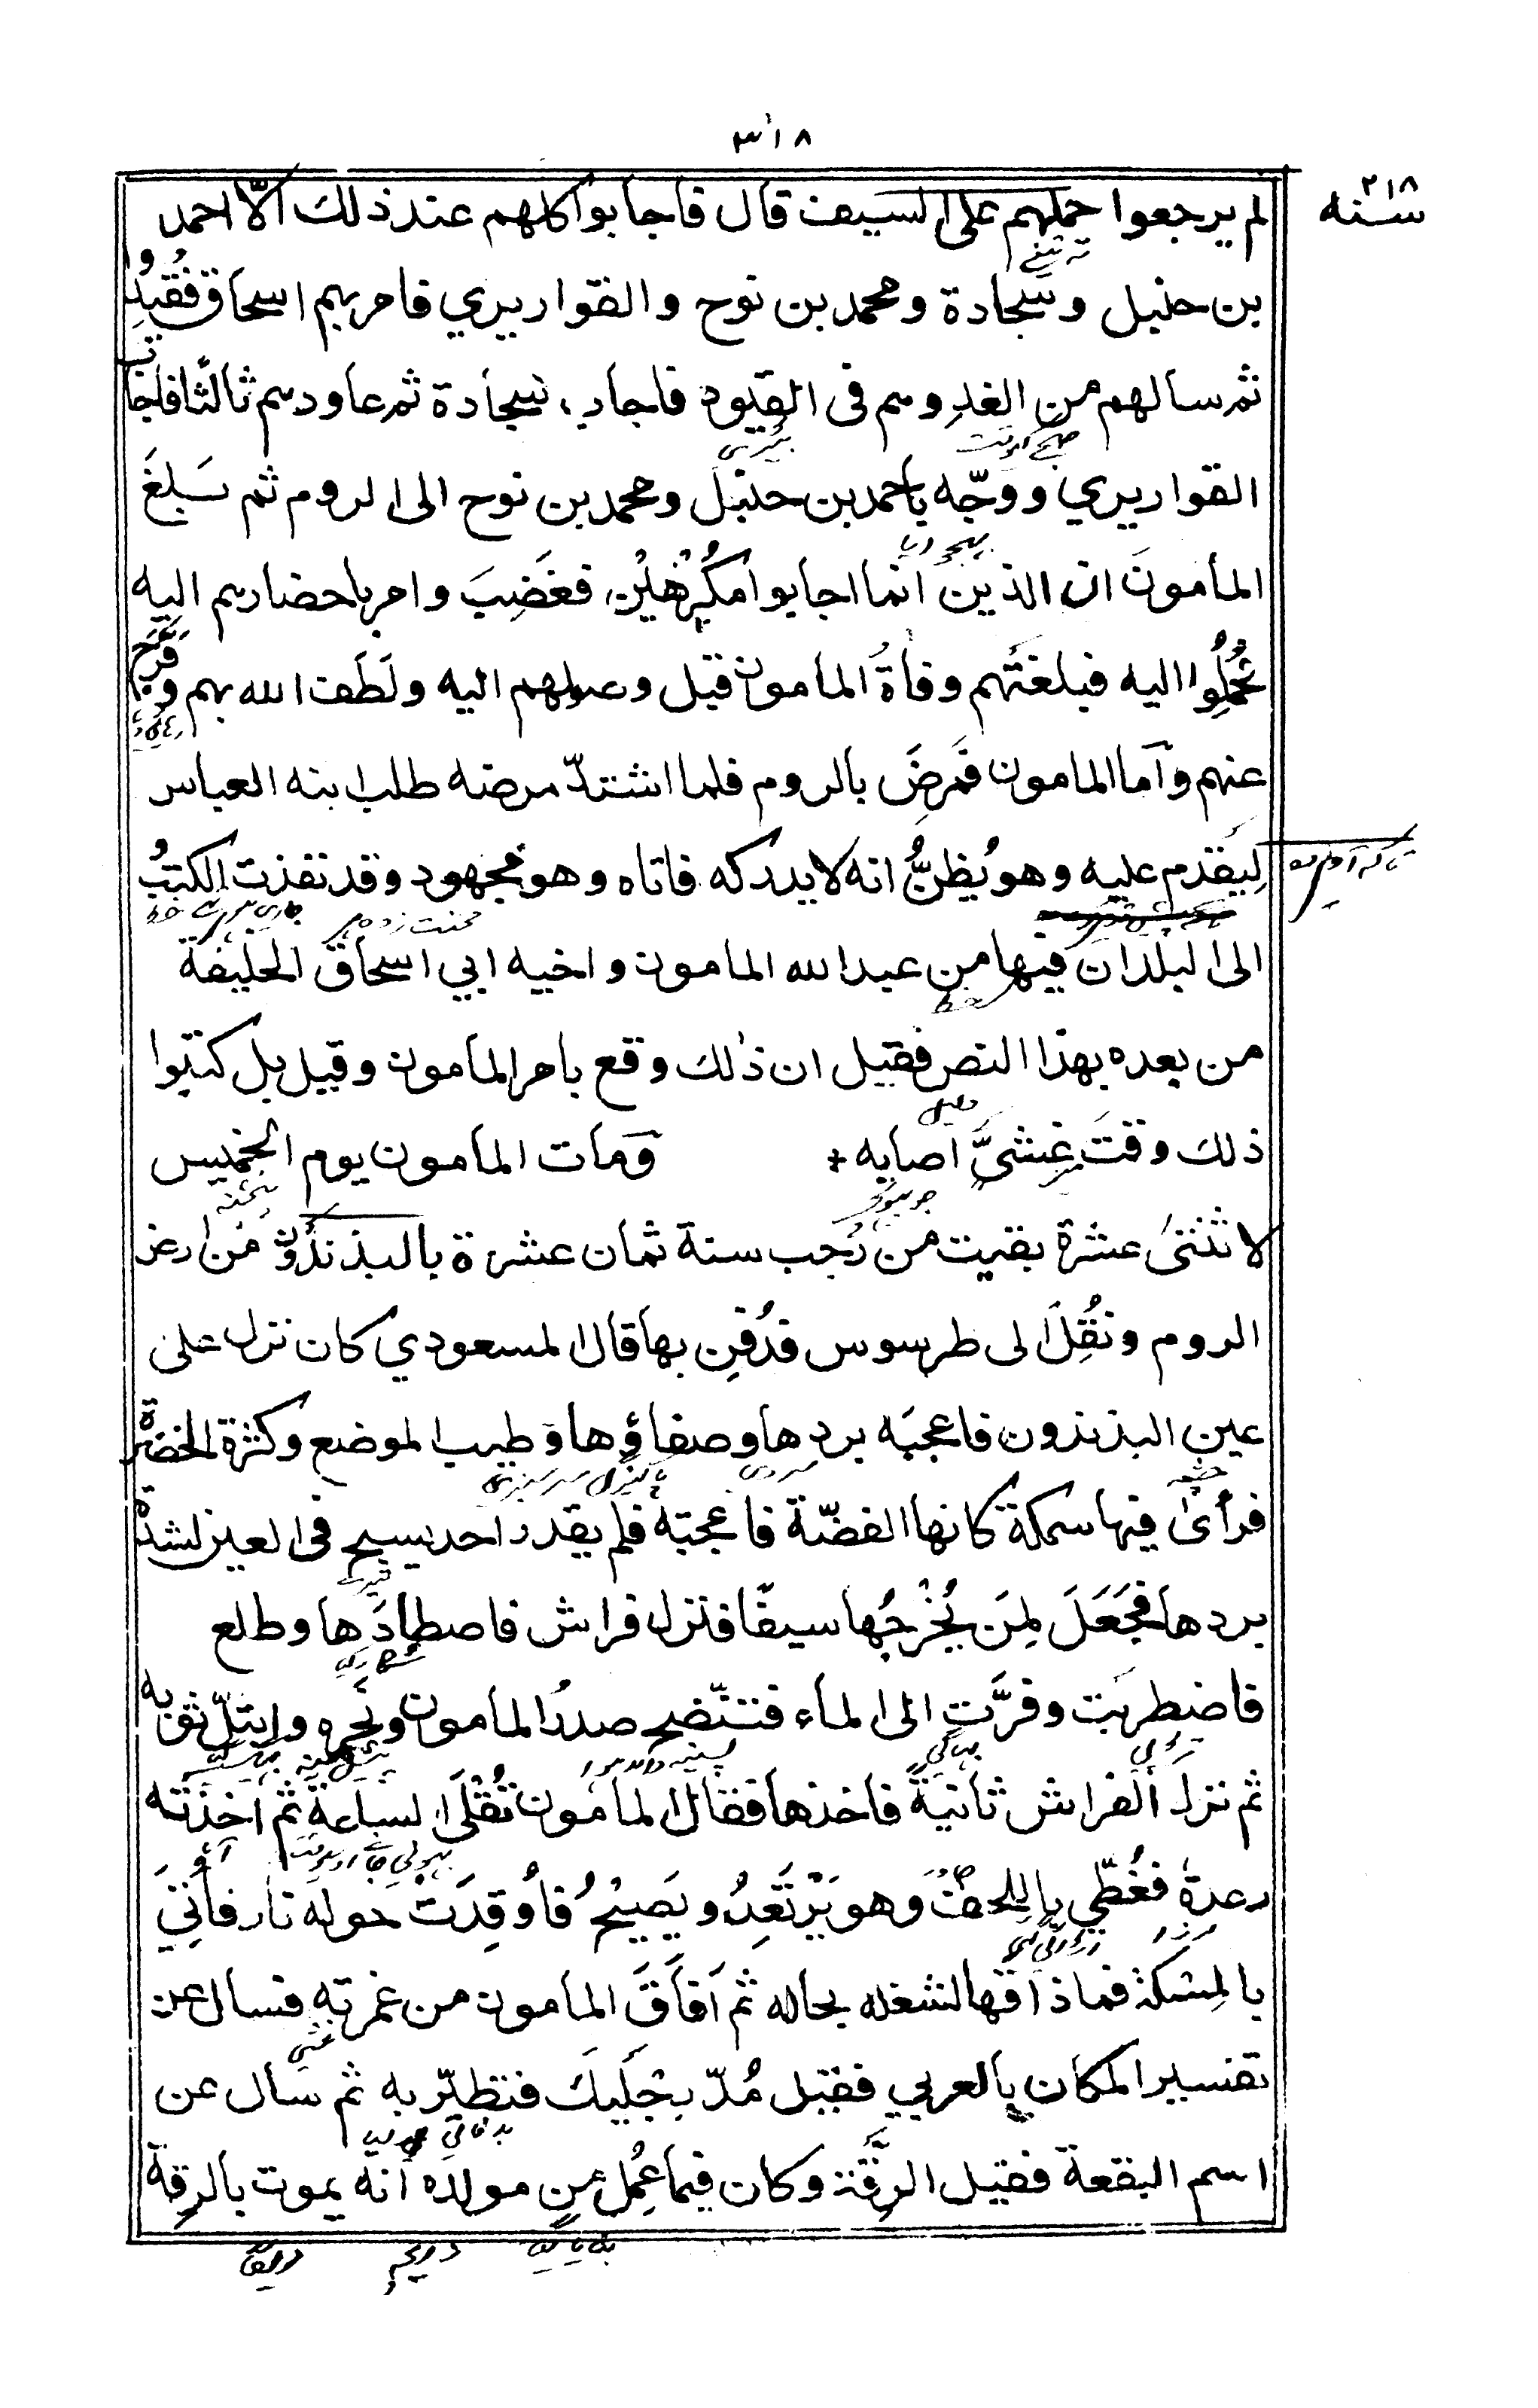 ٣١٨
سنه ٢١٨
لم يرجعوا حملهم على السيف قال فاجابوا كلهم عند ذلك الّا احمد
بن حنبل وسجادة ومحمد بن نوح والقواريري فامر بهم اسحاق فقُيِّدُوا
ثم سالهم من الغد وهم فى القيود فاجاب سجادة ثم عاودهم ثالثًا فاجاب
القواريري ووجّه باحمد بن حنبل ومحمد بن نوح الى الروم ثم بَلَغَ
المأمونَ ان الذين انما اجابوا مُكْرَهِيْن فغَضِبَ وامر باحضارهم اليه
فحُمِلُوا اليه فبلغَتْهم وفاةُ المامون قبل وصولهم اليه ولَطَف الله بهم وفَرَّجَ
عنهم وآما المامون فَمرِضَ بالروم فلما اشتدّ مرضه طلب ابنه العباس
لِيَقدم عليه وهو يُظنُّ انه لا يدركه فاتاه وهو مجهود وقد نفذت الكتبُ
الى البلدان فيها من عبد الله المامون واخيه ابي اسحاق الخليفة
من بعده بهذا النص فقيل ان ذلك وقع بامر المأمون وقيل بل كتبوا
ذلك وقتَ غشىٍّ اصابه + وَمات المامون يوم الخميس
لاثنتى عشرة بقيت من رجب سنة ثمان عشرة بالبذندون من ارض
الروم ونُقِلَ الى طرسوس فدُفِن بها قال المسعودي كان نزل على
عين البذندون فاعجبَه بردها وصفاؤها وَطيب الموضع وكثرة الخضرة
فرأى فيها سمكة كانها الفضّة فاعجبته فلم يقدر احد يسبح فى العين لشدة
بردها فجَعَلَ لِمَن يُخْرجُها سيفًا فنزل فراش فاصطادَها وطلع
فاضطربَت وفرَّت الى الماء فتنضّح صدرُ المأمون ونحره وابتلّ ثوبه
ثم نزل الفراش ثانيةً فاخذها فقال المامون تُقْلَى الساعة ثم اخذته
رعدة فغُطّي باللحف وهو يَرْتَعِدُ ويَصِيْحُ فأُوقِدَت حوله نار فأُتِيَ
بالسمكة فما ذاقها لشغله بحاله ثم اَفَاقَ المامون من غمرته فسال عن
تفسير المكان بالعربي فقيل مُدّ رِجْلَيكَ فتطيّر به ثم سأل عن
اسم البقعة فقيل الرِقّة وكان فيما عُمِل من مولده انه يموت بالرقة